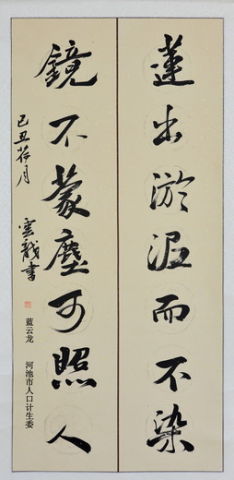 蓮出淤泥而不染
鏡不蒙塵可照人
己丑荷月
雲龍書
蓝云龙 河池市人口计生委